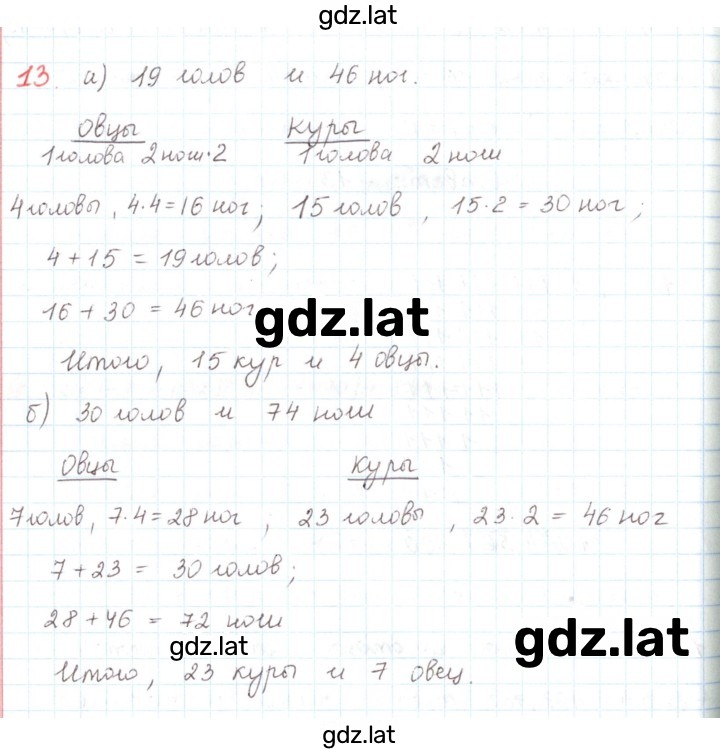 gdz.lat
13. а) 19 голов и 46 ног.
Овцы Куры
1 голова 2 ноги·2 1 голова 2 ноги
4 головы, 4·4=16 ног; 15 голов, 15·2 = 30 ног;
4 + 15 = 19 голов;
16 + 30 = 46 ног
gdz.lat
Итого, 15 кур и 4 овцы.
б) 30 голов и 74 ноги
Овцы Куры
7 голов, 7·4=28 ног, 23 головы, 23·2 = 46 ног
7 + 23 = 30 голов;
28 + 46 = 72 ноги
gdz.lat gdz.lat
Итого, 23 куры и 7 овец.
gdz.lat